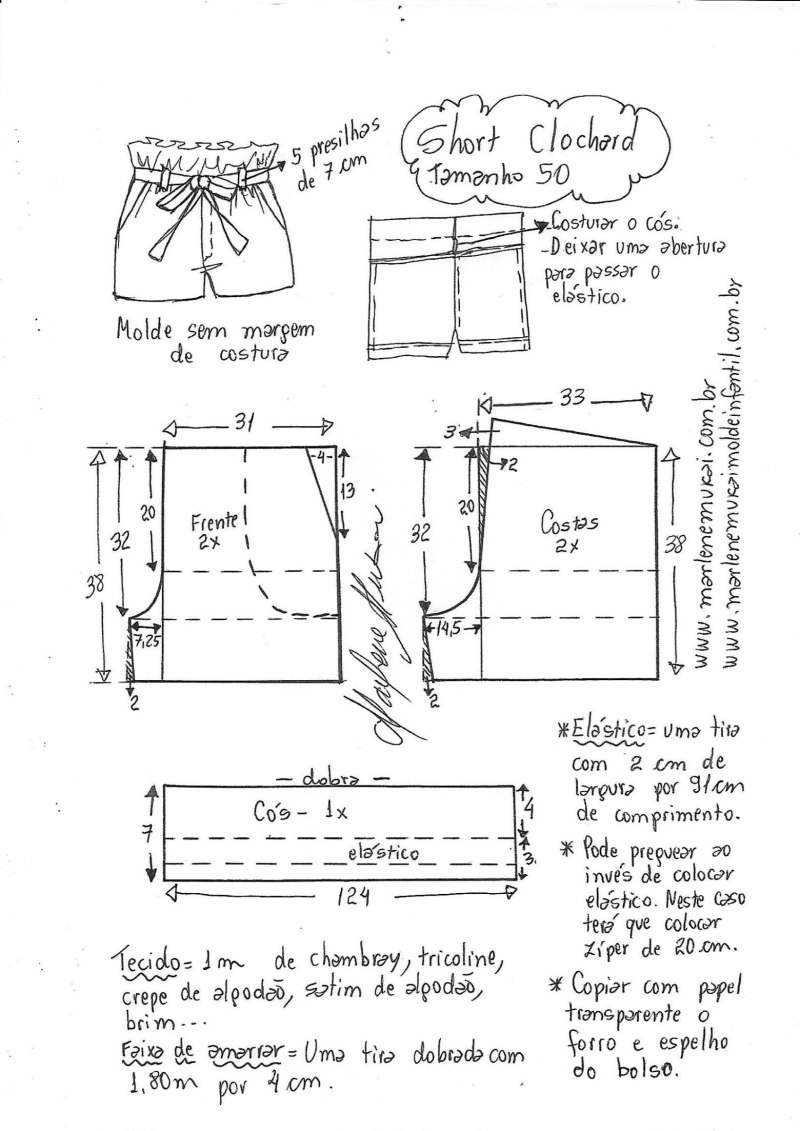 Short Clochard
Tamanho 50
5 presilhas
de 7 cm
Molde sem margem
de costura
-Costurar o cós.
-Deixar uma abertura
para passar o
elástico.
www.marlenemukai.com.br
www.marlenemukaimoldeinfantil.com.br
31
4
13
20
32
38
Frente
2x
7,25
2
33
3
2
20
32
38
Costas
2x
14,5
2
Marlene Mukai.
- dobra -
Cós - 1x
elástico
7
4
3
124
*Elástico= uma tira
com 2 cm de
largura por 91cm
de comprimento.
* Pode preguear ao
invés de colocar
elástico. Neste caso
terá que colocar
zíper de 20 cm.
* Copiar com papel
transparente o
forro e espelho
do bolso.
Tecido= 1m de chambray, tricoline,
crepe de algodão, satim de algodão,
brim...
Faixa de amarrar= Uma tira dobrada com
1,80m por 4 cm.